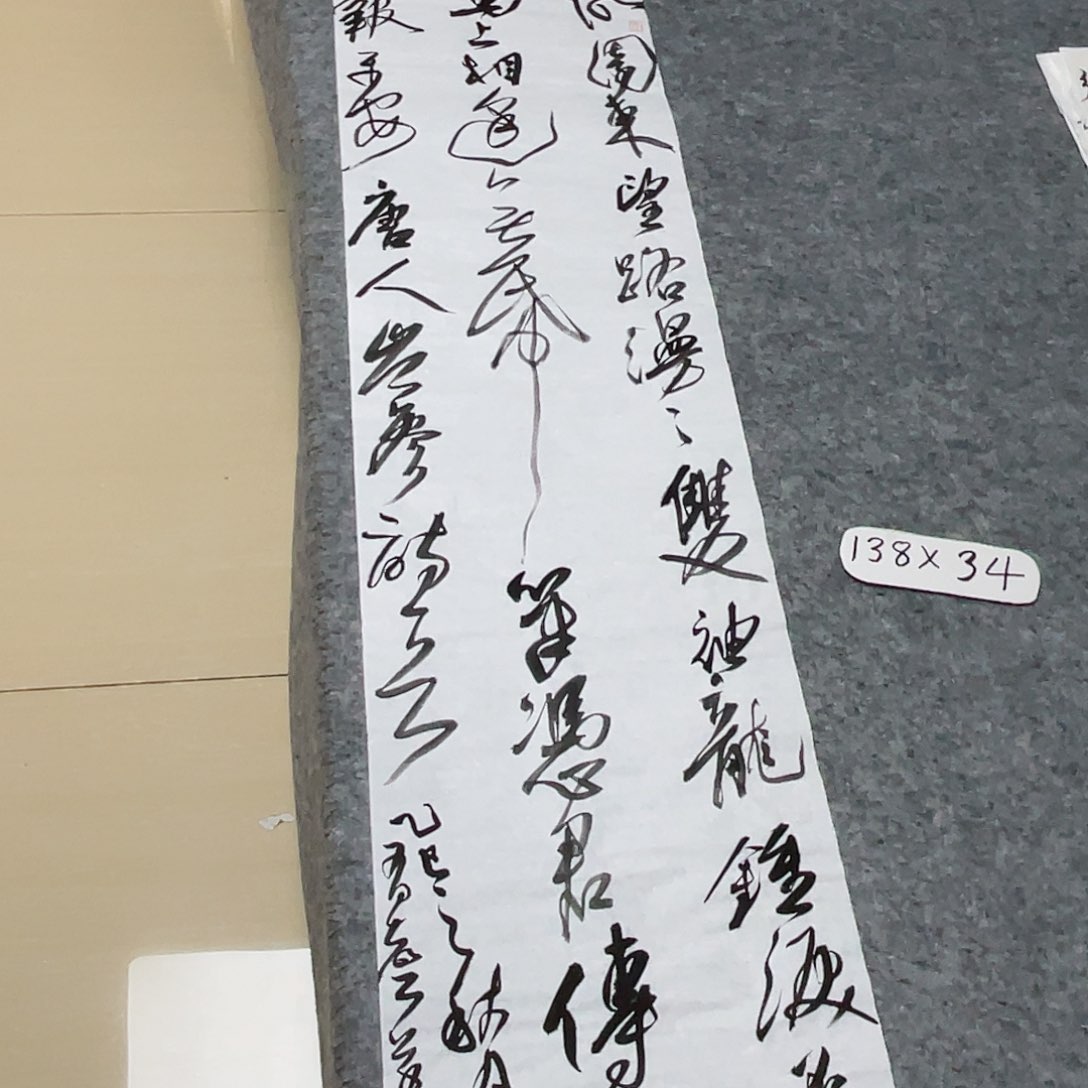 故園東望路漫〻雙袖龍鍾淚
馬上相逢無紙筆憑君傳
報平安唐人岑參詩一首
乙巳之秋月
138×34